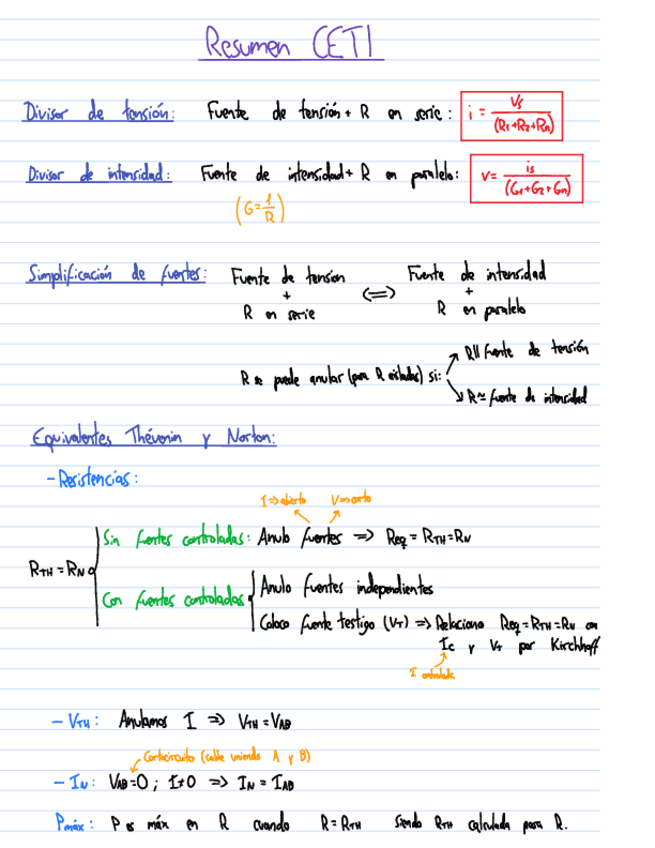 Resumen CETI
Divisor de tensión: Fuente de tensión + R en serie: i = Vs / (R1+R2+Rn)
Divisor de intensidad: Fuente de intensidad + R en paralelo: v = is / (G1+G2+Gn)
(G = 1/R)
Simplificación de fuentes: Fuente de tension + R en serie <=> Fuente de intensidad + R en paralelo
R se puede anular (para R aisladas) si:
R || fuente de tensión
R ≃ fuente de intensidad
Equivalentes Thévenin y Norton:
- Resistencias:
I => abierto V => corto
RTH = RN
Sin fuentes controladas: Anulo fuentes => Req = RTH = RN
Con fuentes controladas
Anulo fuentes independientes
Coloco fuente testigo (VT) => Relaciono Req = RTH = RN con
Ic y VT por Kirchhoff
I controlada
- VTH: Anulamos I => VTH = VAB
Cortocircuito (cable uniendo A y B)
- IN: VAB = 0 ; I≠0 => IN = IAB
Pmáx: P es máx en R cuando R = RTH siendo RTH calculada para R.